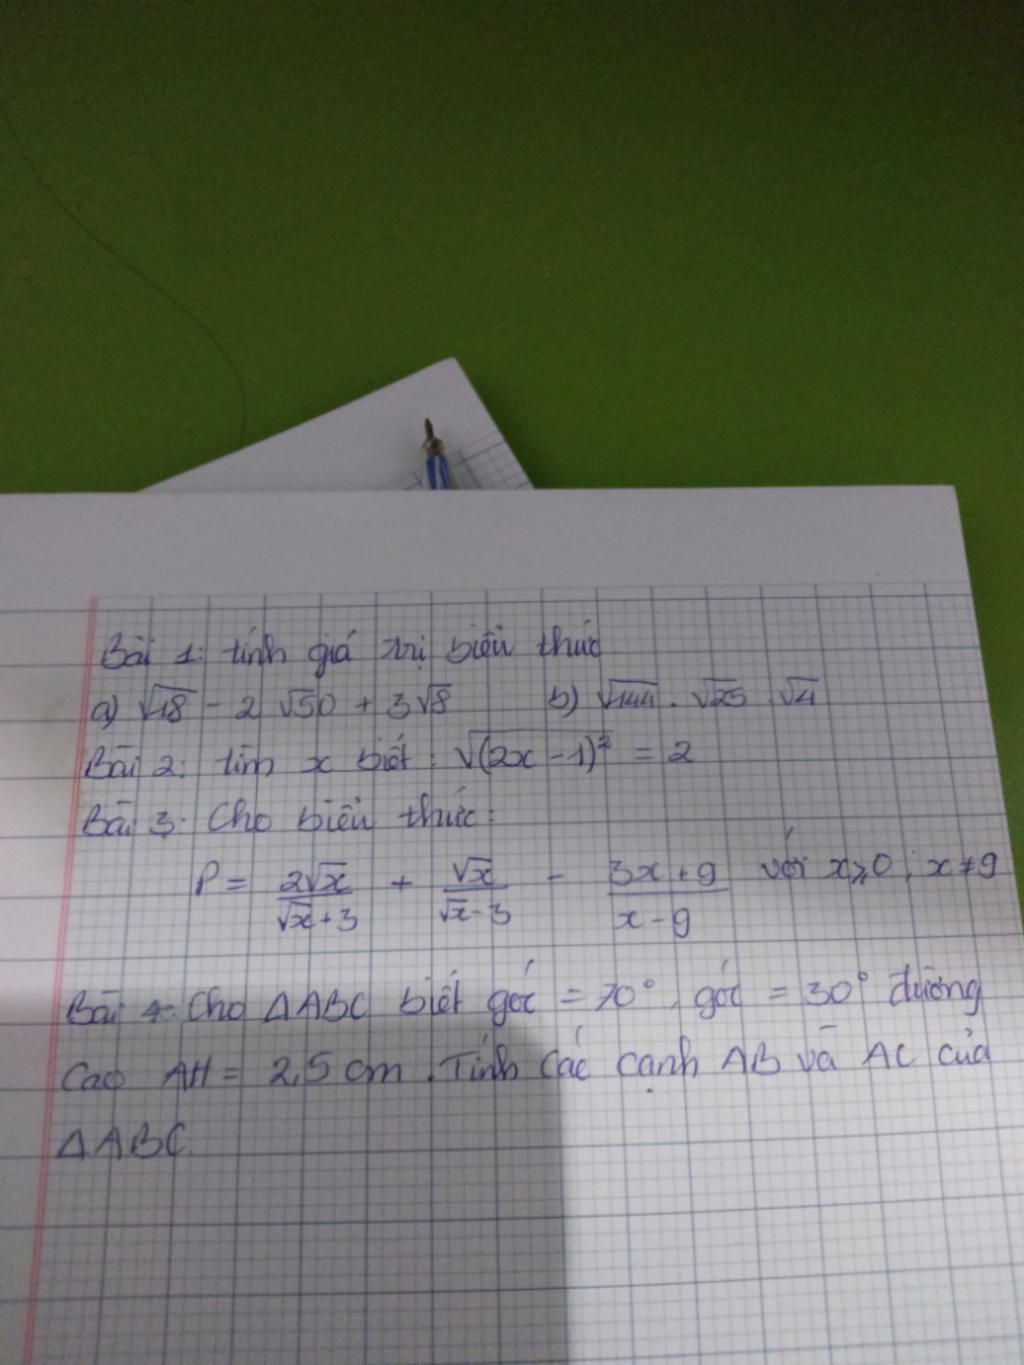 Bài 1: tính giá trị biểu thức
a) √18 - 2√50 + 3√8 b) √144 . √25 . √4
Bài 2: tìm x biết : √(2x - 1)² = 2
Bài 3: Cho biểu thức:
P = 2√x / (√x + 3) + √x / (√x - 3) - (3x + 9) / (x - 9) với x ⩾ 0 ; x ≠ 9
Bài 4: Cho ΔABC biết góc = 70°, góc = 30° đường
Cao AH = 2,5 cm. Tính các cạnh AB và AC của
ΔABC.